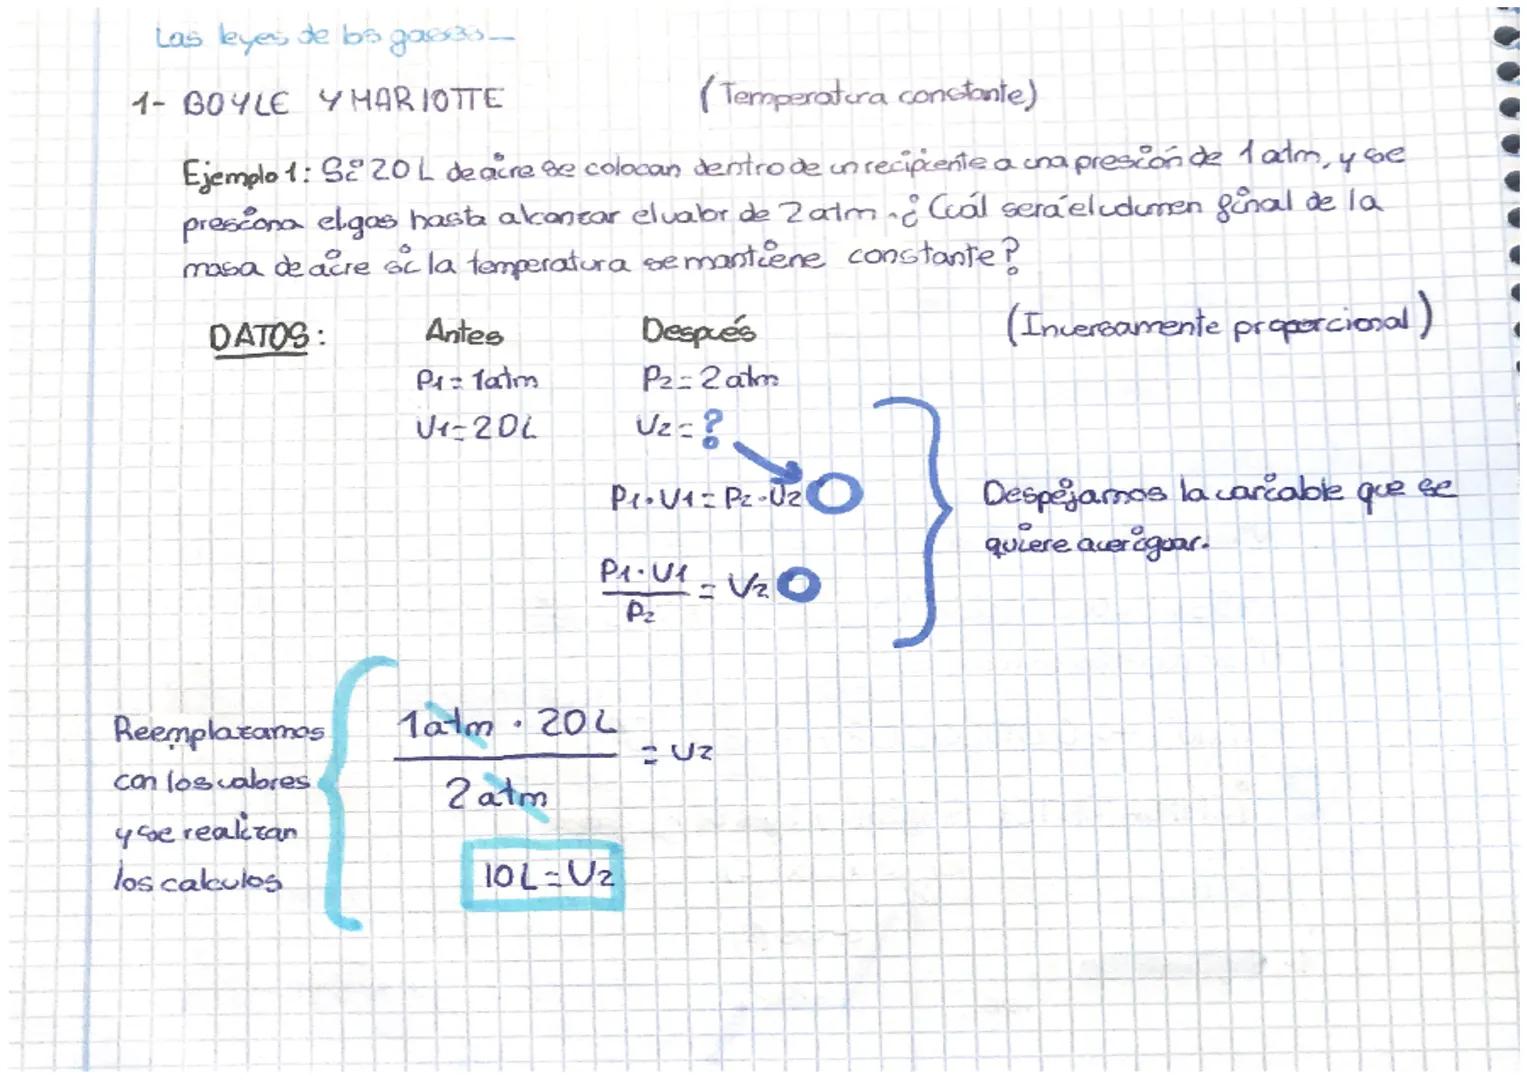 Las leyes de los gases
1- BOYLE Y MARIOTTE (Temperatura constante)
Ejemplo 1: Si 20 L de aire se colocan dentro de un recipiente a una presión de 1 atm, y se
presiona el gas hasta alcanzar el valor de 2 atm. ¿Cuál será el volumen final de la
masa de aire si la temperatura se mantiene constante?
DATOS: Antes Después (Inversamente proporcional)
P1 = 1atm P2 = 2 atm
V1 = 20L V2 = ?
P1 · V1 = P2 · V2
Despejamos la variable que se
quiere averiguar.
P1 · V1
= V2
P2
Reemplazamos
con los valores
y se realizan
los calculos
1atm · 20L
= V2
2 atm
10L = V2